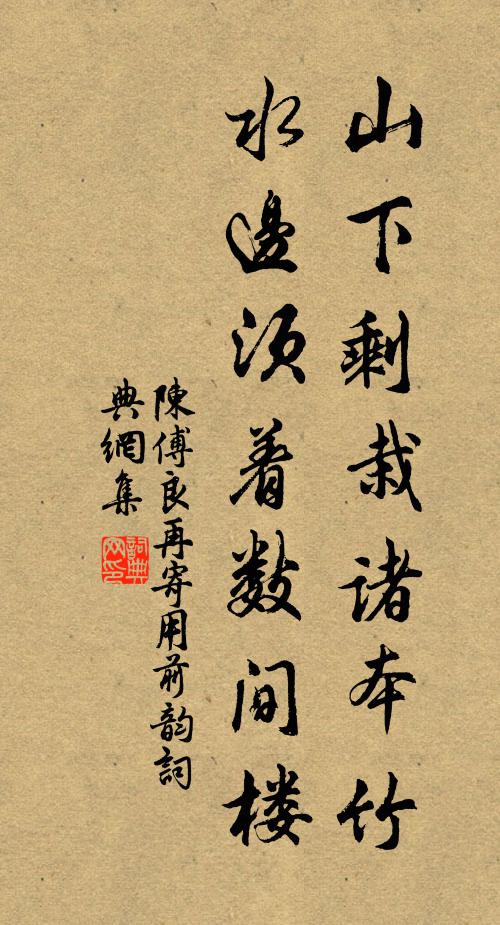 山下剩栽诸本竹
水邊须着数间楼
陳傅良再寄用前韵詞
典網集
詞典
网印